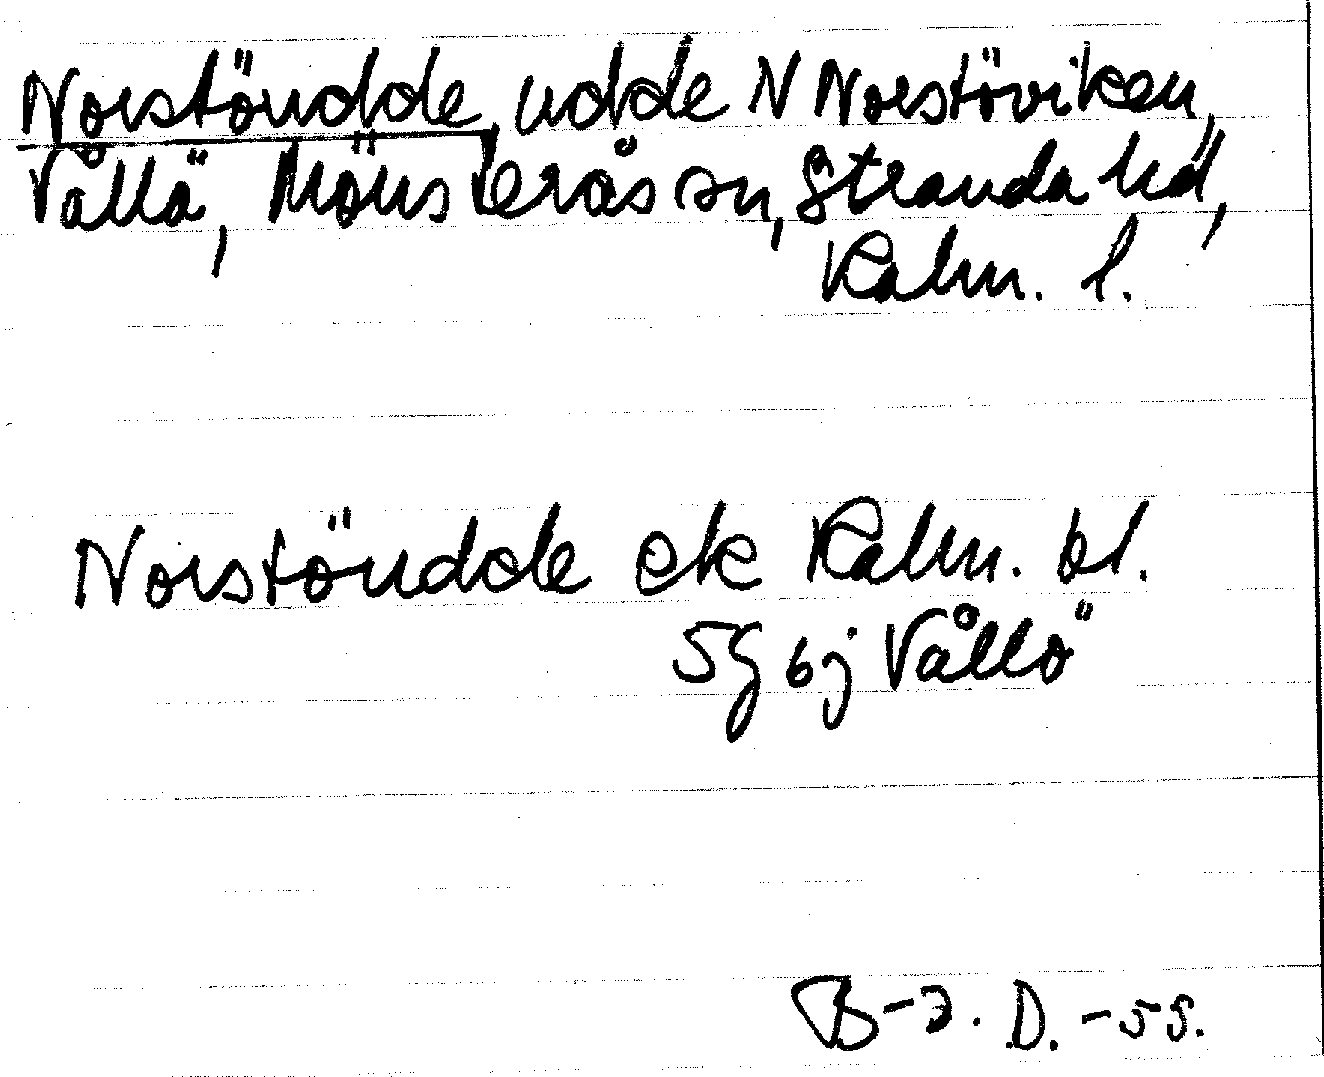 Norstöudde, udde N Norstöviken,
Vållö, Mönsterås sn, Stranda hd,
Kalm. l.
Norstöudde ek Kalm. bl.
5G 6j Vållö
B-J. D. -55.